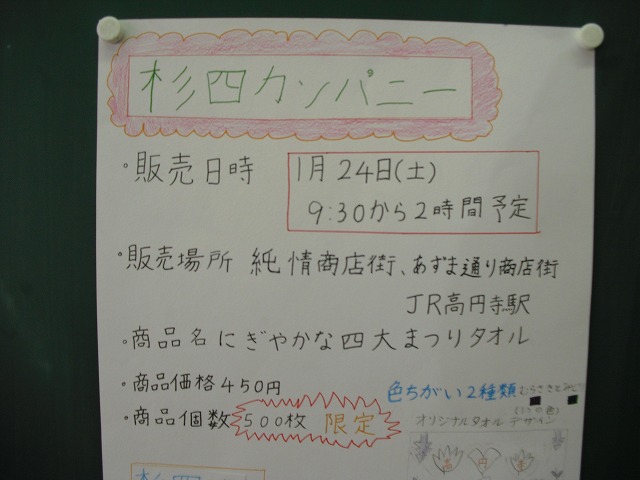 杉四カンパニー
・販売日時 1月24日(土)
9:30から2時間予定
・販売場所 純情商店街、あずま通り商店街
JR高円寺駅
・商品名 にぎやかな四大まつりタオル
・商品価格 450円
色ちがい2種類 むらさきとみどり
・商品個数 500枚 限定
オリジナルタオルデザイン
高 円 寺
杉四